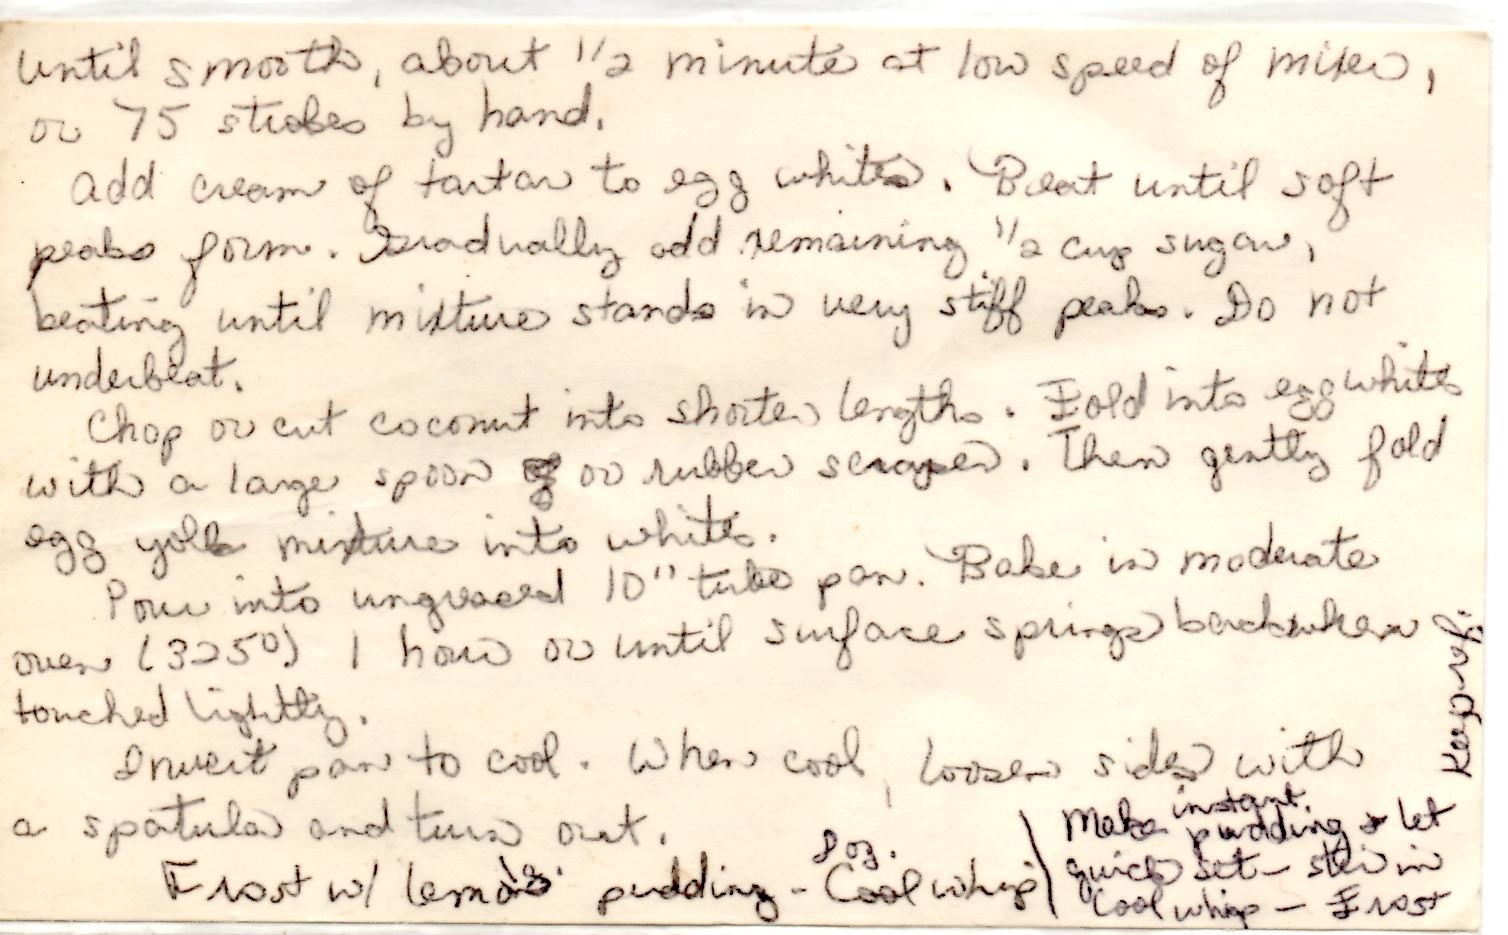 until smooth, about 1/2 minute at low speed of mixer,
or 75 strokes by hand.
Add cream of tartar to egg whites. Beat until soft
peaks form. Gradually add remaining 1/2 cup sugar,
beating until mixture stands in very stiff peaks. Do not
underbeat.
Chop or cut coconut into shorter lengths. Fold into egg whites
with a large spoon or rubber scraper. Then gently fold
egg yolk mixture into whites.
Pour into ungreased 10" tube pan. Bake in moderate
oven (325°) 1 hour or until surface springs back when
touched lightly.
Invert pan to cool. When cool, loosen sides with
a spatula and turn out.
Frost w/ lemon pudding - 8 oz. Cool whip
Make instant
pudding & let
quick set - stir in
Cool whip - Frost
Keep ref.